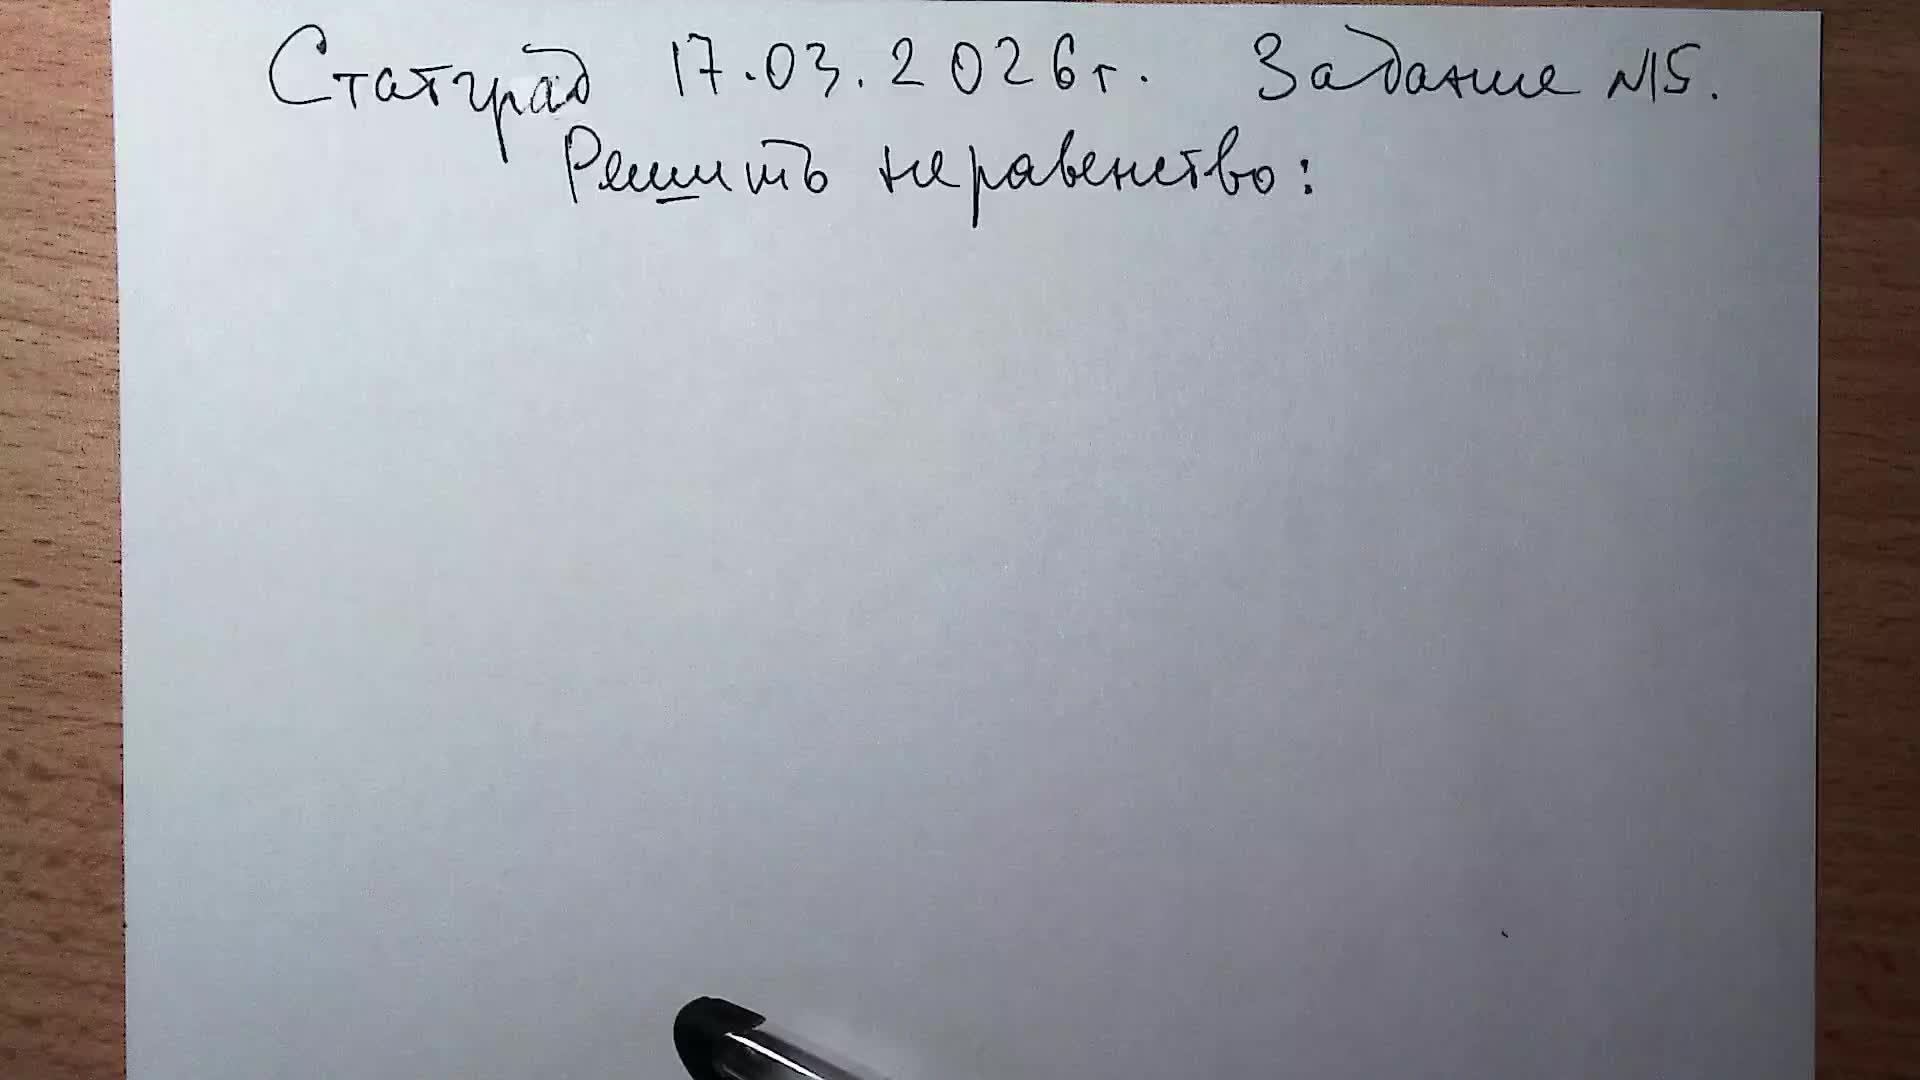 Статград 17.03.2026г. Задание №15.
Решить неравенство: